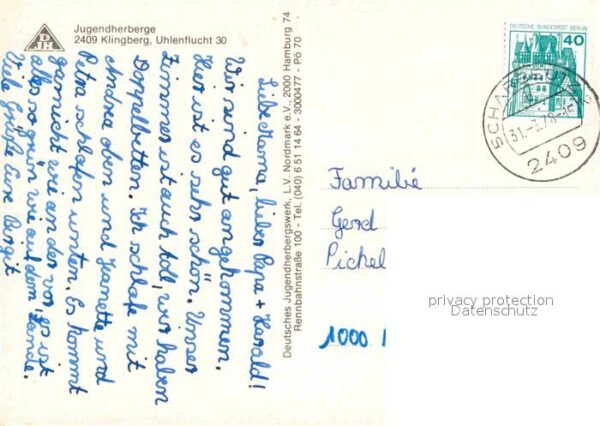 DJH
Jugendherberge
2409 Klingberg, Uhlenflucht 30
Liebe Mama, lieber Papa + Harald!
Wir sind gut angekommen.
Hier ist es sehr schön. Unser
Zimmer ist auch toll, wir haben
Doppelbetten. Ich schlafe mit
Andrea oben und Jeanette und
Petra schlafen unten. Es kommt
garnicht wie an der vor. Es ist
alles so grün wie auf dem Lande.
Viele Grüße Eure Birgit
Deutsches Jugendherbergswerk, L.V. Nordmark e.V., 2000 Hamburg 74
Rennbahnstraße 100 - Tel. (040) 6 51 14 64 - 3000477 - Pö 70
DEUTSCHE BUNDESPOST BERLIN
40
SCHARBEUTZ
2409
Familie
Gerd
Pichel
1000
privacy protection
Datenschutz